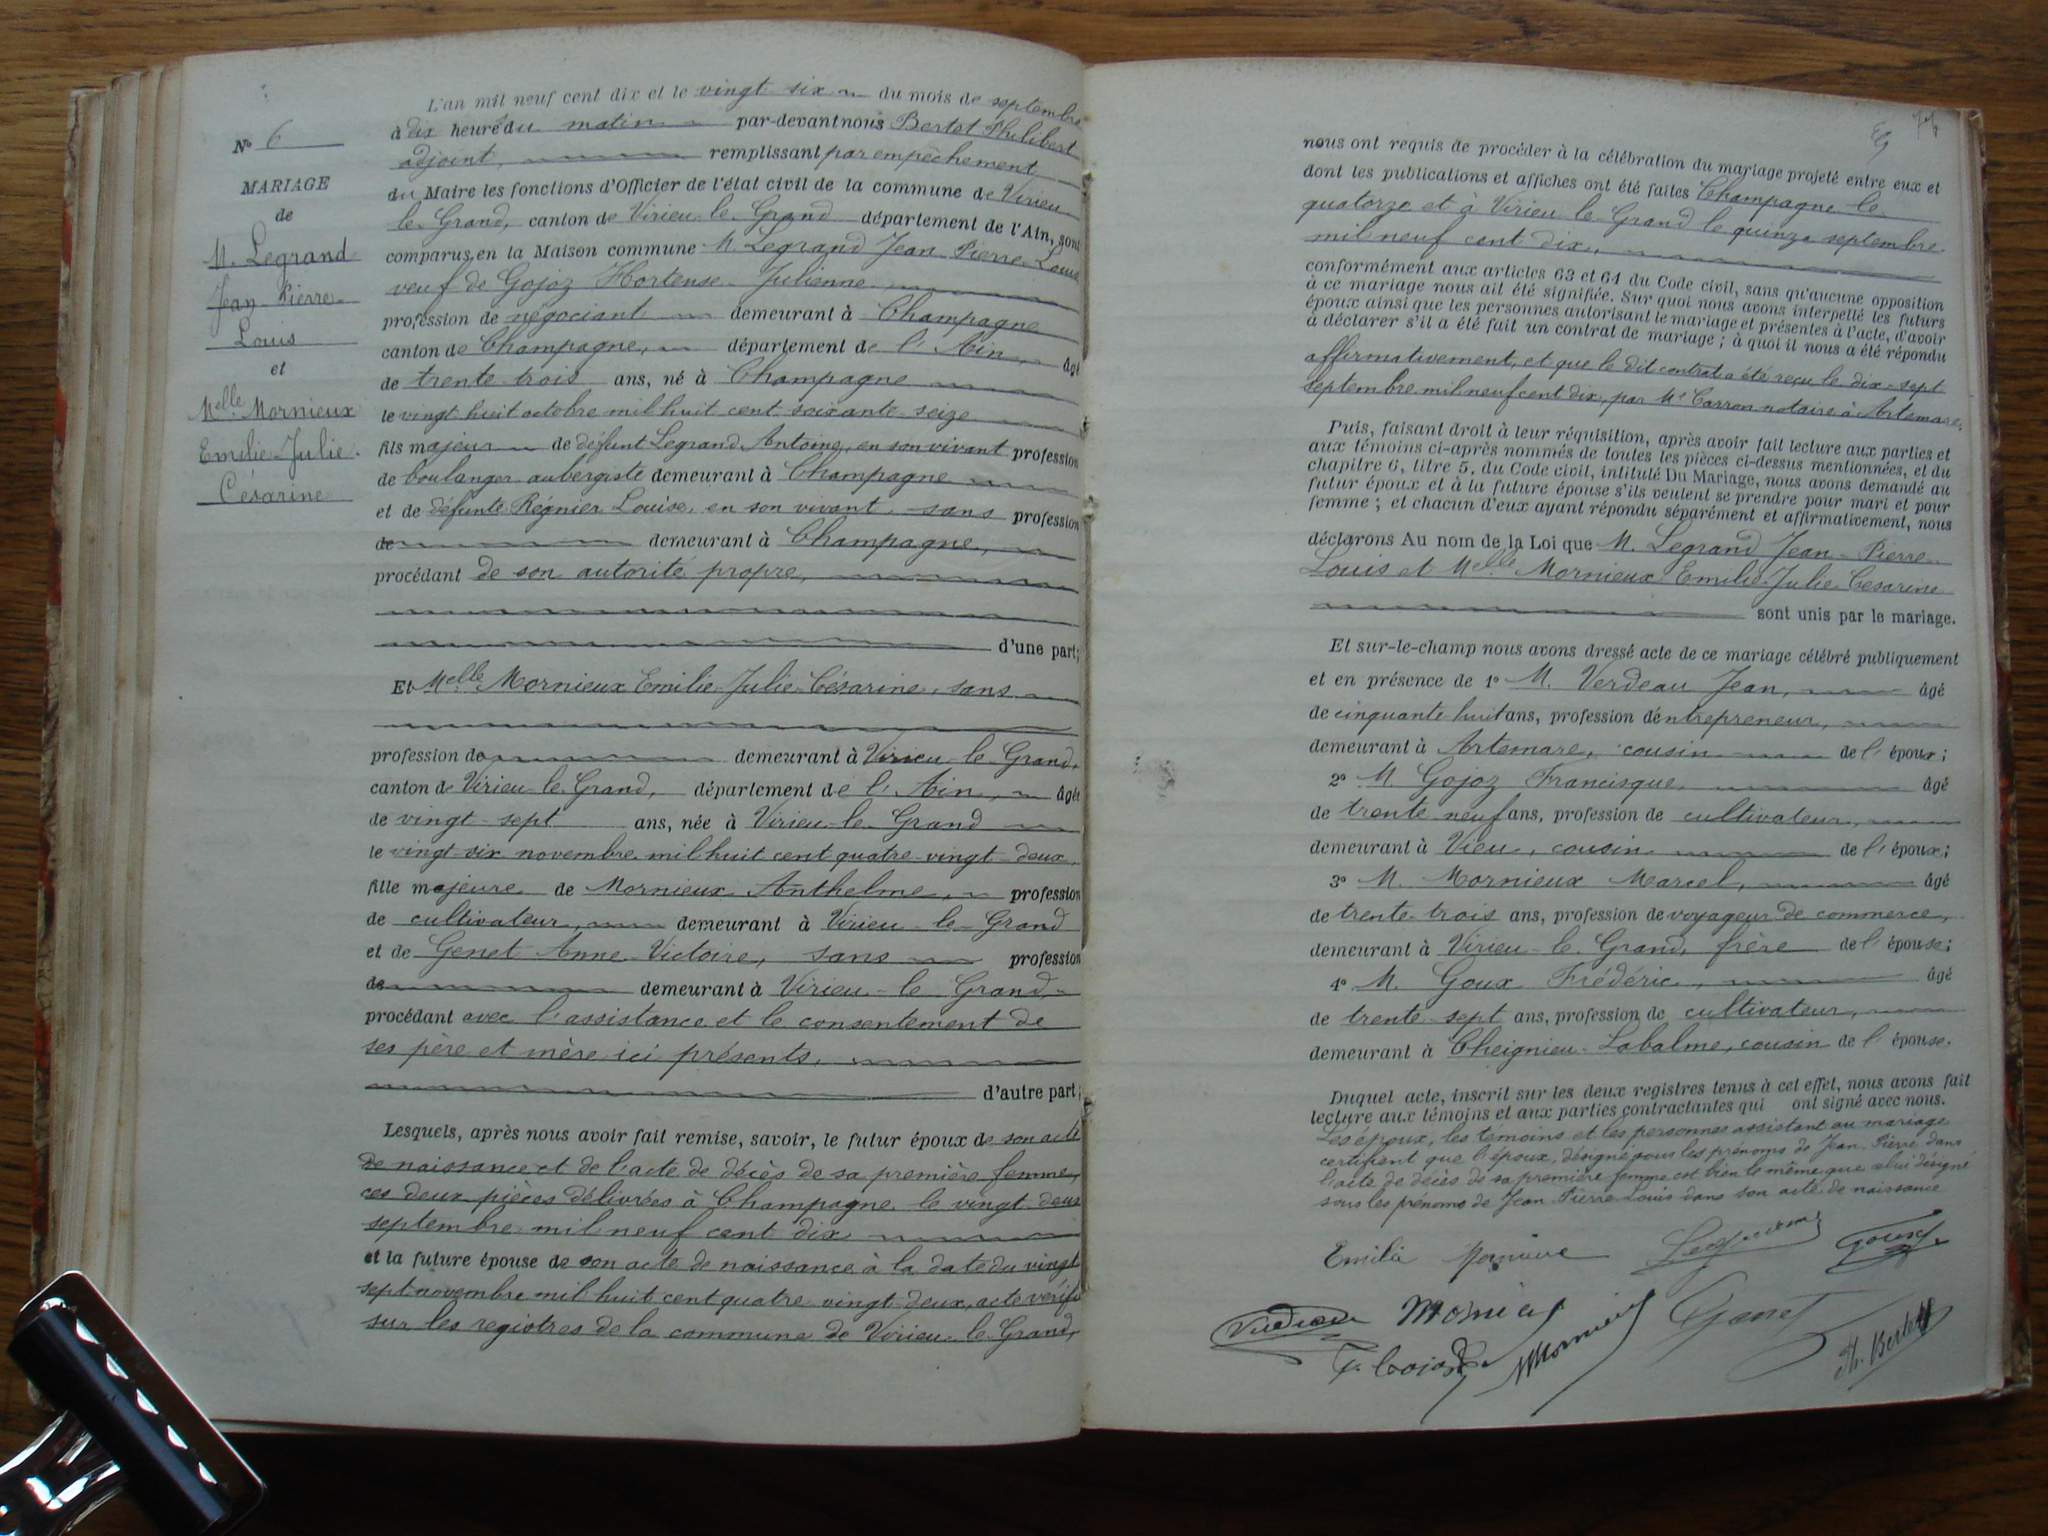 L'an mil neuf cent dix et le vingt six du mois de septembre
à dix heures du matin par-devant nous Bertet Philibert
adjoint, remplissant par empêchement
du Maire les fonctions d'Officier de l'état civil de la commune de Virieu
le Grand, canton de Virieu-le-Grand département de l'Ain, sont
comparus, en la Maison commune M Legrand Jean Pierre Louis
veuf de Gojoz Hortense Julienne
profession de négociant demeurant à Champagne
canton de Champagne, département de l'Ain, âgé
de trente trois ans, né à Champagne
le vingt huit octobre mil huit cent soixante seize
fils majeur de défunt Legrand Antoine, en son vivant profession
de boulanger aubergiste demeurant à Champagne
et de défunte Régnier Louise, en son vivant sans profession
de demeurant à Champagne,
procédant de son autorité propre,
d'une part;
Et Melle Mornieux Emilie Julie Césarine, sans
profession de demeurant à Virieu-le-Grand,
canton de Virieu-le-Grand, département de l'Ain, âgée
de vingt-sept ans, née à Virieu-le-Grand
le vingt-six novembre mil huit cent quatre-vingt-deux,
fille majeure de Mornieux Anthelme, profession
de cultivateur, demeurant à Virieu-le-Grand
et de Genet Anne Victoire, sans profession
de demeurant à Virieu-le-Grand,
procédant avec l'assistance et le consentement de
ses père et mère ici présents,
d'autre part;
Lesquels, après nous avoir fait remise, savoir, le futur époux de son acte
de naissance et de l'acte de décès de sa première femme,
ces deux pièces délivrées à Champagne le vingt-deux
septembre mil neuf cent dix
et la future épouse de son acte de naissance à la date du vingt
sept novembre mil huit cent quatre-vingt-deux, acte vérifié
sur les registres de la commune de Virieu-le-Grand,
N° 6
MARIAGE
de
M. Legrand
Jean-Pierre
Louis
et
Melle Mornieux
Emilie Julie
Césarine
nous ont requis de procéder à la célébration du mariage projeté entre eux et
dont les publications et affiches ont été faites Champagne le
quatorze et à Virieu-le-Grand le quinze septembre
mil neuf cent dix,
conformément aux articles 63 et 64 du Code civil, sans qu'aucune opposition
à ce mariage nous ait été signifiée. Sur quoi nous avons interpellé les futurs
époux ainsi que les personnes autorisant le mariage et présentes à l'acte, d'avoir
à déclarer s'il a été fait un contrat de mariage; à quoi il nous a été répondu
affirmativement, et que le dit contrat a été reçu le dix-sept
septembre mil neuf cent dix, par Me Carron notaire à Artemare.
Puis, faisant droit à leur réquisition, après avoir fait lecture aux parties et
aux témoins ci-après nommés de toutes les pièces ci-dessus mentionnées, et du
chapitre 6, titre 5, du Code civil, intitulé Du Mariage, nous avons demandé au
futur époux et à la future épouse s'ils veulent se prendre pour mari et pour
femme; et chacun d'eux ayant répondu séparément et affirmativement, nous
déclarons Au nom de la Loi que M. Legrand Jean-Pierre
Louis et Melle Mornieux Emilie Julie Césarine
sont unis par le mariage.
Et sur-le-champ nous avons dressé acte de ce mariage célébré publiquement
et en présence de 1° M. Verdeau Jean, âgé
de cinquante-huit ans, profession d'entrepreneur,
demeurant à Artemare, cousin de l'époux;
2° M. Gojoz Francisque, âgé
de trente neuf ans, profession de cultivateur,
demeurant à Vieu, cousin de l'époux;
3° M. Mornieux Marcel, âgé
de trente-trois ans, profession de voyageur de commerce,
demeurant à Virieu-le-Grand, frère de l'épouse;
4° M. Goux Frédéric, âgé
de trente-sept ans, profession de cultivateur,
demeurant à Cheignieu-Labalme, cousin de l'épouse.
Duquel acte, inscrit sur les deux registres tenus à cet effet, nous avons fait
lecture aux témoins et aux parties contractantes qui ont signé avec nous.
Les époux, les témoins et les personnes assistant au mariage
certifient que l'époux, désigné sous les prénoms de Jean Pierre dans
l'acte de décès de sa première femme est bien le même que celui désigné
sous les prénoms de Jean Pierre Louis dans son acte de naissance
Emilie Mornieux Legrand Goux
Mornieux Genet
F. Gojoz Mornieux Ph. Bertet